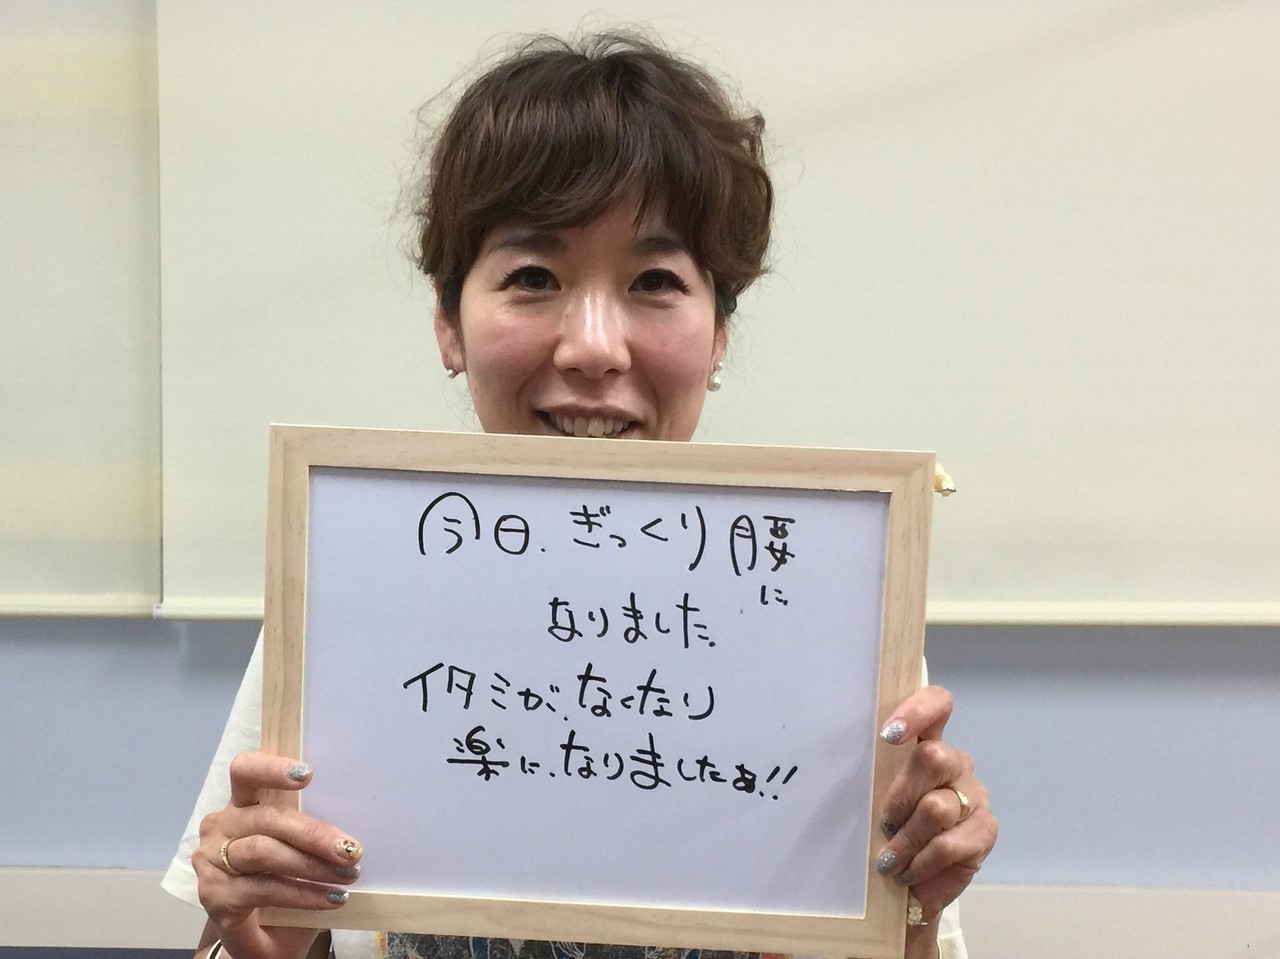 今日、ぎっくり腰に
なりました。
イタミが、なくなり
楽に、なりましたぁ!!